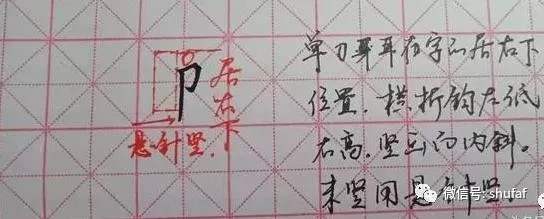 卩
居右下
悬针竖.
单刀耳耳在字的居右下
位置.横折钩左低
右高.竖画向内斜。
末竖用悬针竖.
微信号: shufaf